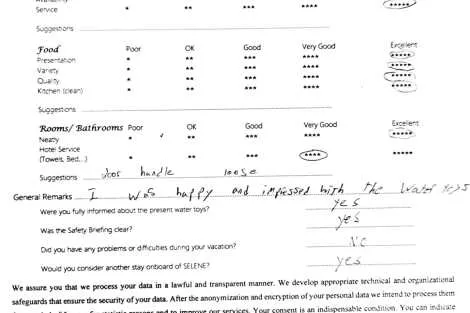 Service * ** *** **** *****
Suggestions
Food Poor OK Good Very Good Excellent
Presentation * ** *** **** *****
Variety * ** *** **** *****
Quality * ** *** **** *****
Kitchen (clean) * ** *** **** *****
Suggestions
Rooms/ Bathrooms Poor OK Good Very Good Excellent
Neaty * ** *** **** *****
Hotel Service
(Towels, Bed...) * ** *** **** *****
Suggestions door handle loose
General Remarks I was happy and impressed with the water toys
Were you fully informed about the present water toys? yes
Was the Safety Briefing clear? yes
Did you have any problems or difficulties during your vacation? NO
Would you consider another stay onboard of SELENE? yes
We assure you that we process your data in a lawful and transparent manner. We develop appropriate technical and organizational
safeguards that ensure the security of your data. After the anonymization and encryption of your personal data we intend to process them
and to improve our services. Your consent is an indispensable condition. You can indicate